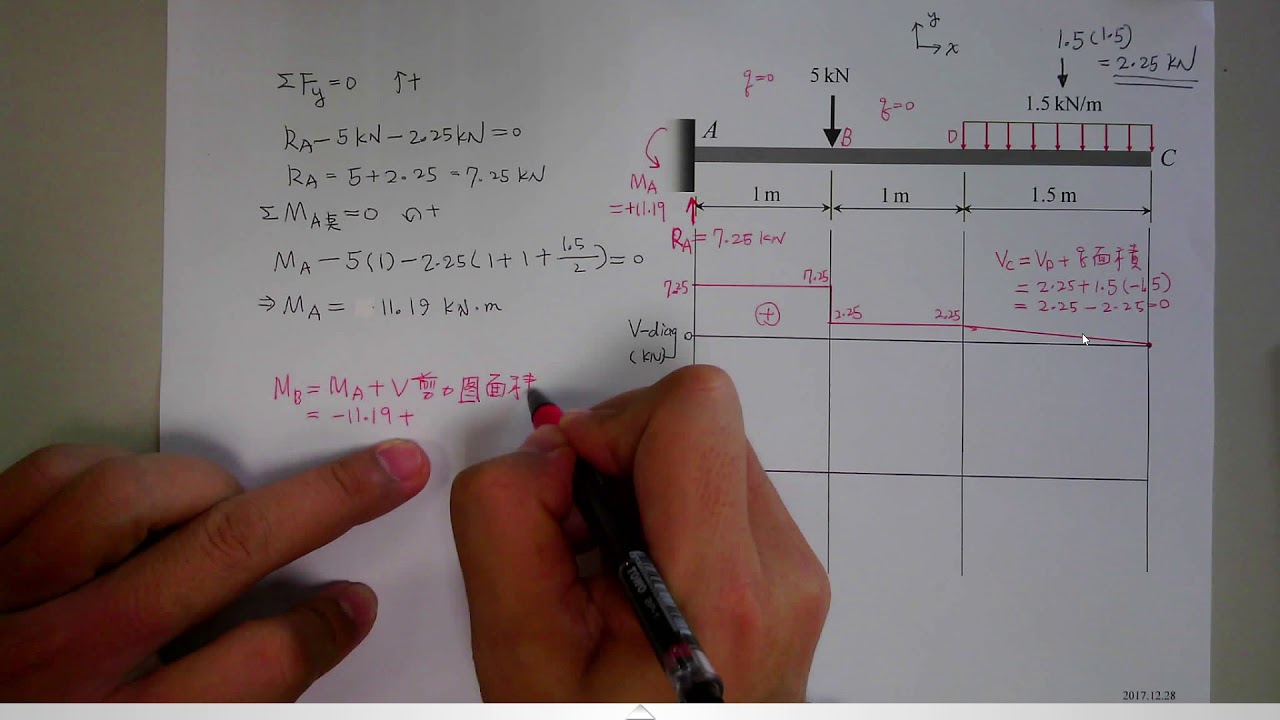 ΣFy=0 ↑+
RA-5kN-2.25kN=0
RA=5+2.25=7.25 kN
ΣMA点=0 ↶+
MA-5(1)-2.25(1+1+1.5/2)=0
⇒MA= 11.19 kN.m
MB=MA+V剪力图面積
=-11.19+
y
x
1.5(1.5)
=2.25 kN
q=0
5 kN
q=0
1.5 kN/m
A
B
D
C
MA
=+11.19
1 m
1 m
1.5 m
RA=7.25 kN
7.25
7.25
+
2.25
2.25
V-diag
(kN)
0
VC=VD+q面積
=2.25+1.5(-1.5)
=2.25-2.25=0
2017.12.28